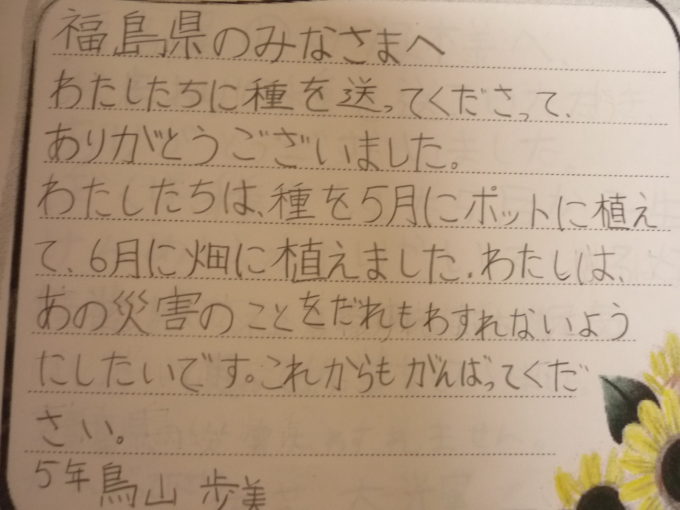 福島県のみなさまへ
わたしたちに種を送ってくださって、
ありがとうございました。
わたしたちは、種を5月にポットに植え
て、6月に畑に植えました。わたしは、
あの災害のことをだれもわすれないよう
にしたいです。これからもがんばってくだ
さい。
5年鳥山 歩美